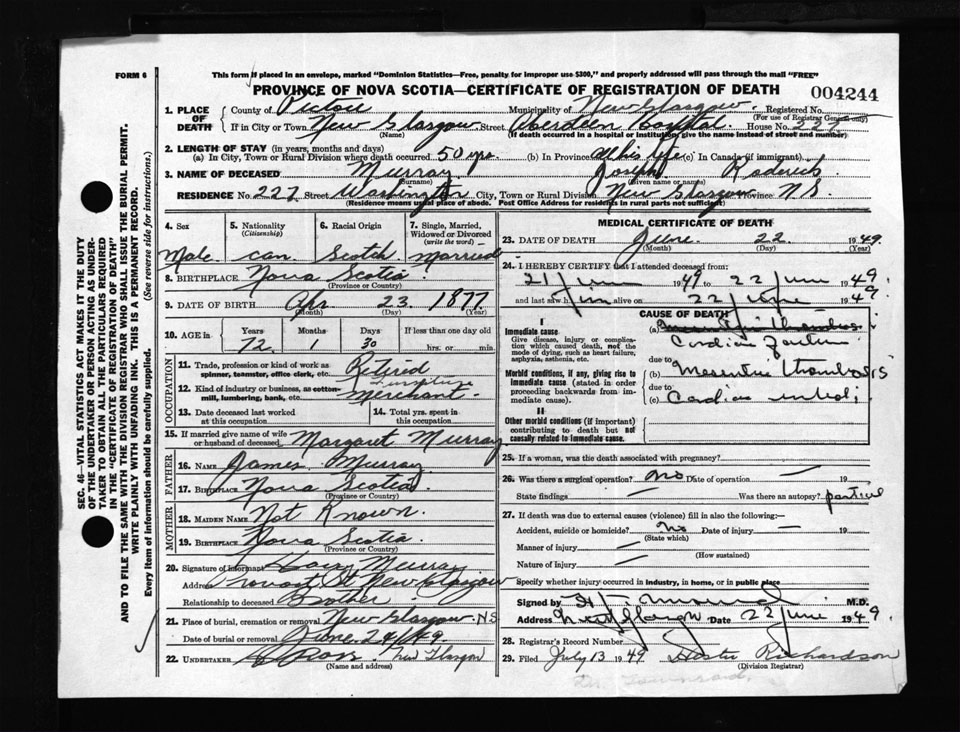 FORM 6
This form if placed in an envelope, marked "Dominion Statistics—Free, penalty for improper use $300," and properly addressed will pass through the mail "FREE"
PROVINCE OF NOVA SCOTIA—CERTIFICATE OF REGISTRATION OF DEATH
004244
1. PLACE OF DEATH
County of Pictou Municipality of New Glasgow. Registered No.
(For use of Registrar General only)
If in City or Town New Glasgow Street Aberdeen Hospital. House No. 227
(If death occurred in a hospital or institution, give the name instead of street and number)
2. LENGTH OF STAY (in years, months and days)
(a) In City, Town or Rural Division where death occurred 50 yrs. (b) In Province all his life (c) In Canada (if immigrant)
3. NAME OF DECEASED Murray Joseph Roderick
(Surname) (Given name or names)
RESIDENCE No. 227 Street Washington City, Town or Rural Division New Glasgow Province N.S.
(Residence means usual place of abode. Post Office Address for residents in rural parts not sufficient)
4. Sex Male
5. Nationality (Citizenship) Can.
6. Racial Origin Scotch
7. Single, Married, Widowed or Divorced (write the word) Married
8. BIRTHPLACE Nova Scotia
(Province or Country)
9. DATE OF BIRTH Apr 23 1877
(Month) (Day) (Year)
10. AGE in Years Months Days If less than one day old
72 1 30 hrs. or min.
OCCUPATION
11. Trade, profession or kind of work as spinner, teamster, office clerk, etc. Retired
12. Kind of industry or business, as cotton-mill, lumbering, bank, etc. Furniture Merchant
13. Date deceased last worked at this occupation
14. Total yrs. spent in this occupation
15. If married give name of wife or husband of deceased Margaret Murray
FATHER
16. NAME James Murray
17. Birthplace Nova Scotia
(Province or Country)
MOTHER
18. MAIDEN NAME Not Known.
19. BIRTHPLACE Nova Scotia.
(Province or Country)
20. Signature of informant Murray
Address Provost St New Glasgow
Relationship to deceased Brother
21. Place of burial, cremation or removal New Glasgow. N.S
Date of burial or removal June 24/49.
22. UNDERTAKER Ross New Glasgow
(Name and address)
MEDICAL CERTIFICATE OF DEATH
23. DATE OF DEATH June 22 1949
(Month) (Day) (Year)
24. I HEREBY CERTIFY that I attended deceased from:
21/June 1949 to 22/June 1949
and last saw him alive on 22/June 1949
CAUSE OF DEATH
I
Immediate cause
Give disease, injury or complication which caused death, not the mode of dying, such as heart failure, asphyxia, asthenia, etc.
(a) Cardiac Failure
due to
Morbid conditions, if any, giving rise to immediate cause (stated in order proceeding backwards from immediate cause).
(b) Mesenteric thrombosis
due to
(c) Cardiac
II
Other morbid conditions (if important) contributing to death but not causally related to immediate cause.
25. If a woman, was the death associated with pregnancy?
26. Was there a surgical operation? No Date of operation — 19
State findings — Was there an autopsy? partial
27. If death was due to external causes (violence) fill in also the following:—
Accident, suicide or homicide? No Date of injury — 19
(State which)
Manner of injury —
(How sustained)
Nature of injury —
Specify whether injury occurred in industry, in home, or in public place
Signed by M.D.
Address New Glasgow Date 22 June 1949
28. Registrar's Record Number
29. Filed July 13 1949 Richardson
(Division Registrar)
SEC. 46—VITAL STATISTICS ACT MAKES IT THE DUTY
OF THE UNDERTAKER OR PERSON ACTING AS UNDER-
TAKER TO OBTAIN ALL THE PARTICULARS REQUIRED
IN THE "CERTIFICATE OF REGISTRATION OF DEATH"
AND TO FILE THE SAME WITH THE DIVISION REGISTRAR WHO SHALL ISSUE THE BURIAL PERMIT.
WRITE PLAINLY WITH UNFADING INK. THIS IS A PERMANENT RECORD.
Every item of information should be carefully supplied. (See reverse side for instructions.)